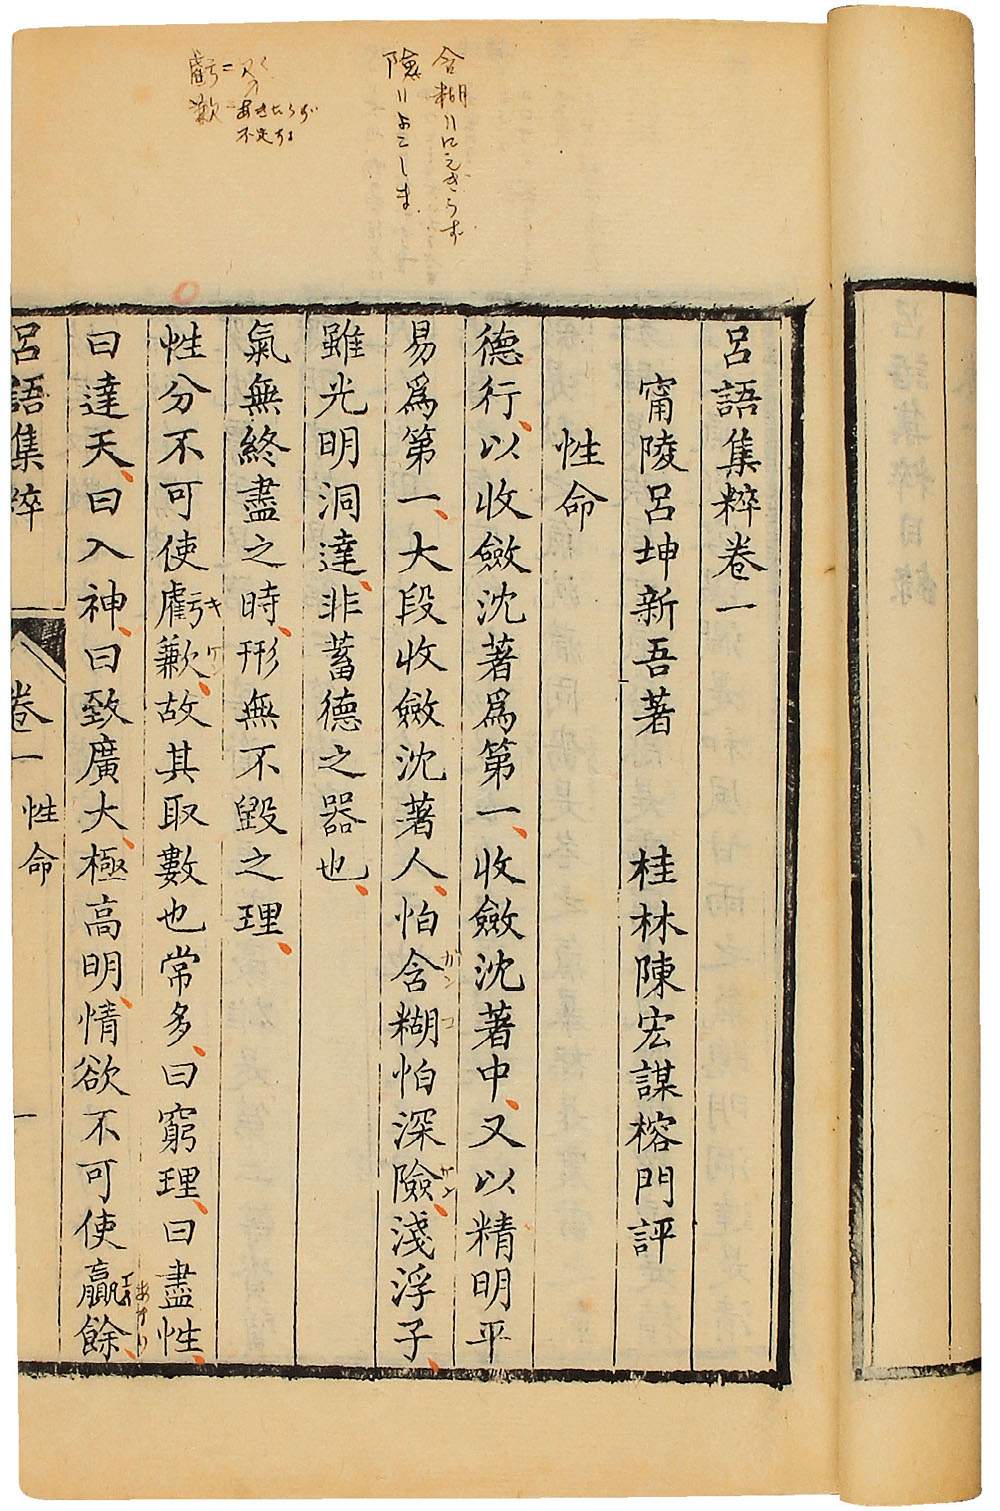 呂語集粹卷一
甯陵呂坤新吾著　桂林陳宏謀榕門評
性命
德行、以收斂沈著爲第一、收斂沈著中、又以精明平
易爲第一、大段收斂沈著人、怕含糊怕深險、淺浮子、
雖光明洞達、非蓄德之器也、
氣無終盡之時、形無不毀之理、
性分不可使虧歉、故其取數也常多、曰窮理、曰盡性、
曰達天、曰入神、曰致廣大、極高明、情欲不可使贏餘、
呂語集粹
卷一　性命
一
含糊ハにえぎらず
險ハよこしま
虧＝欠く
歉＝あきたらず
不足する
ガンコ
ケン
キ
ケン
あまり
呂語集粹目錄